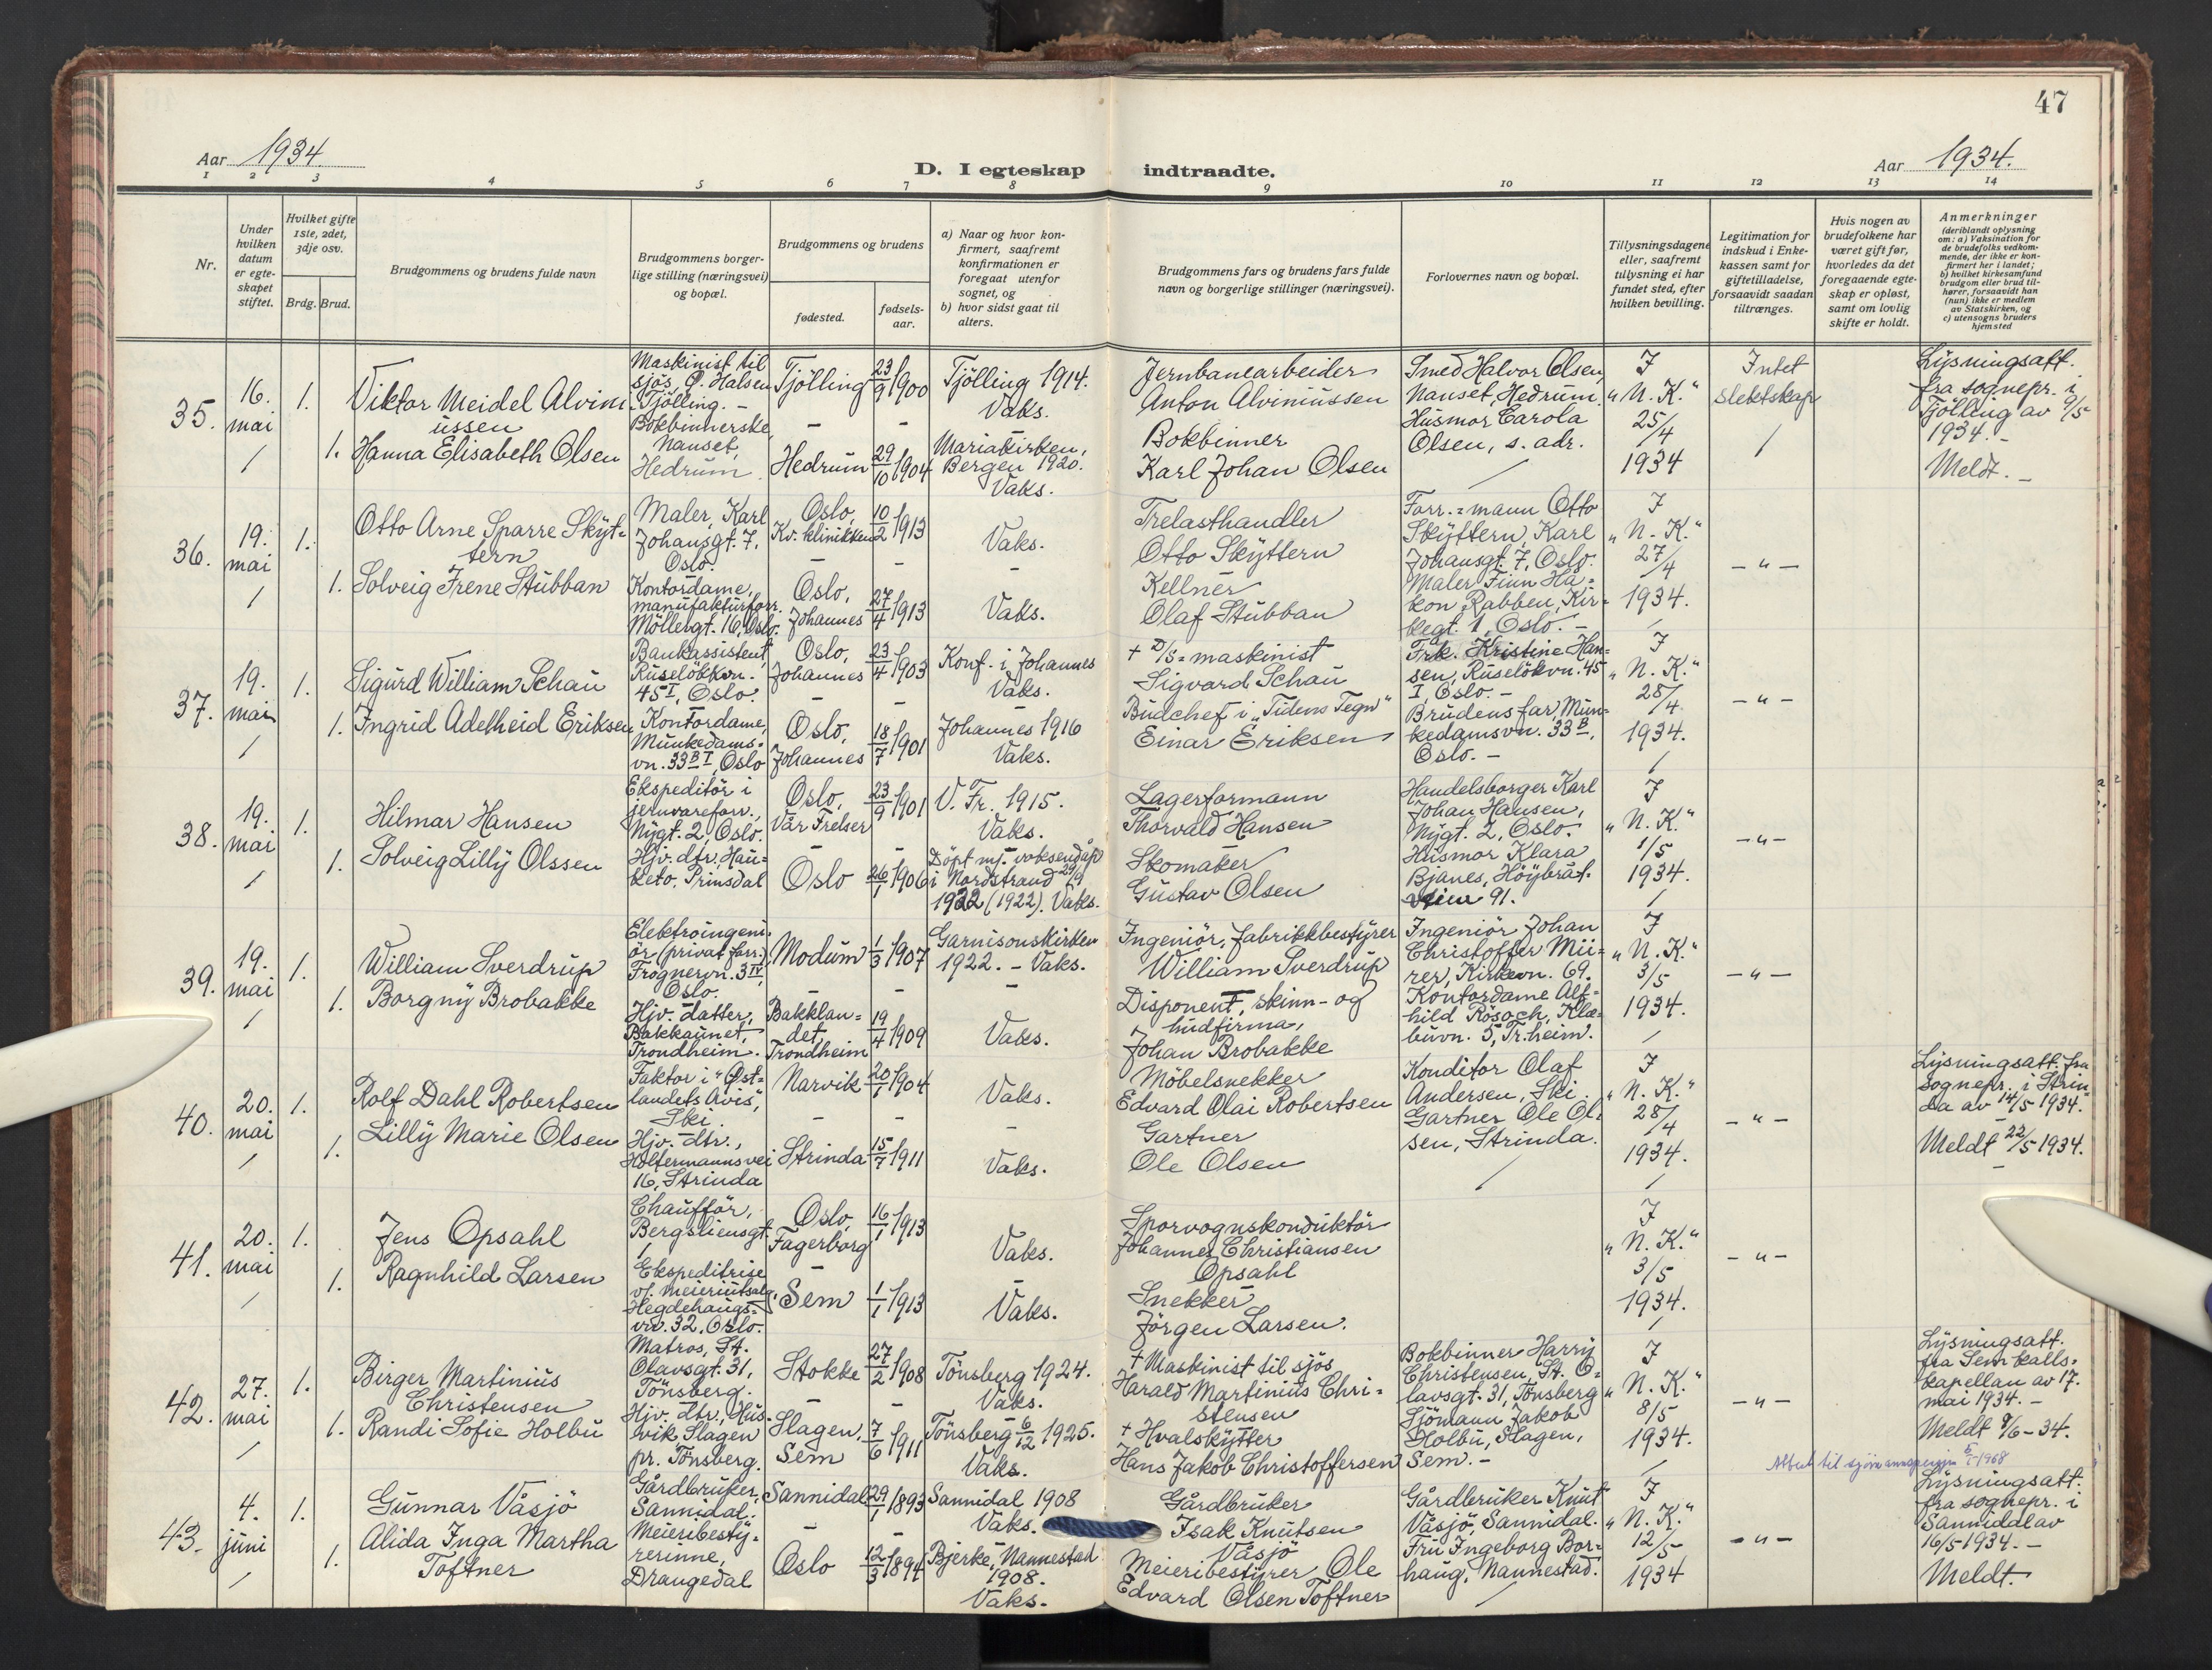 47
Aar 1934.
D. I egteskap indtraadte.
Aar 1934.
1 2 3 4 5 6 7 8 9 10 11 12 13 14
Nr.
Under
hvilken
datum
er egte-
skapet
stiftet.
Hvilket gifte
1ste, 2det,
3dje osv.
Brdg. Brud.
Brudgommens og brudens fulde navn
Brudgommens borger-
lige stilling (næringsvei)
og bopæl.
Brudgommens og brudens
fødested.
fødsels-
aar.
a) Naar og hvor kon-
firmert, saafremt
konfirmationen er
foregaat utenfor
sognet, og
b) hvor sidst gaat til
alters.
Brudgommens fars og brudens fars fulde
navn og borgerlige stillinger (næringsvei).
Forlovernes navn og bopæl.
Tillysningsdagene
eller, saafremt
tillysning ei har
fundet sted, efter
hvilken bevilling.
Legitimation for
indskud i Enke-
kassen samt for
giftetilladelse,
forsaavidt saadan
tiltrænges.
Hvis nogen av
brudefolkene har
været gift før,
hvorledes da det
foregaaende egte-
skap er opløst,
samt om lovlig
skifte er holdt.
Anmerkninger
(deriblandt oplysning
om: a) Vaksination for
de brudefolks vedkom-
mende, der ikke er kon-
firmert her i landet;
b) hvilket kirkesamfund
brudgom eller brud til-
hører, forsaavidt han
(hun) ikke er medlem
av Statskirken, og
c) utensogns bruders
hjemsted
35.
16.
mai
1.
1.
Viktor Meidel Alvini
ussen
Hanna Elisabeth Olsen
Maskinist til
sjös, Ö. Halsen
Tjölling. -
Bokbinnerske,
Nanset,
Hedrum
Tjölling
Hedrum
23/9 1900
29/10 1904
Tjölling 1914.
Vaks.
Mariakirken,
Bergen 1920.
Vaks.
Jernbanearbeider
Anton Alviniussen
Bokbinner
Karl Johan Olsen
Smed Halvor Olsen,
Nanset, Hedrum.
Husmor Carola
Olsen, s. adr.
I
"N. K."
25/4
1934
Intet
slektskap
Lysningsatt.
fra sognepr. i
Tjölling av 9/5
1934. -
Meldt. -
36.
19.
mai
1.
1.
Otto Arne Sparre Skyt=
tern
Solveig Irene Stubban
Maler, Karl
Johansgt. 7,
Oslo.
Kontordame,
manufakturforr.
Möllergt. 16, Oslo.
Oslo,
Kv. klinikken
Oslo,
Johannes
10/2 1913
27/4 1913
Vaks.
Vaks.
Trelasthandler
Otto Skyttern
Kellner
Olaf Stubban
Forr.=mann Otto
Skyttern, Karl
Johansgt. 7, Oslo.
Maler Finn Ha=
kon Rabben, Kir=
kegt. 1, Oslo. -
I
"N. K."
27/4
1934.
- " -
37.
19.
mai
1.
1.
Sigurd William Schau
Ingrid Adelheid Eriksen
Bankassistent,
Ruselökkvn.
45 I, Oslo.
Kontordame,
Munkedams=
vn. 33 B I, Oslo
Oslo,
Johannes
Oslo,
Johannes
23/4 1903
18/7 1901
Konf. i Johannes
Vaks.
Johannes 1916
Vaks.
+ D/S=maskinist
Sigvard Schau
Budchef i "Tidens Tegn"
Einar Eriksen
Frk. Kristine Han=
sen, Ruselökvn. 45
I Oslo. -
Brudens far, Mun=
kedamsvn. 33 B,
Oslo. -
I
"N. K."
28/4.
1934.
- " -
38.
19.
mai
1.
1.
Hilmar Hansen
Solveig Lilly Olssen
Ekspeditör i
jernvareforr.,
Nygt. 2, Oslo.
Hjv. dtr., Hau=
keto, Prinsdal
Oslo,
Vår Frelser
Oslo
23/9 1901
26/1 1906
V. Fr. 1915.
Vaks.
Döpt m/. voksendåp
i Nordstrand 29/9
1922 (1922). Vaks.
Lagerformann
Thorvald Hansen
Skomaker
Gustav Olsen
Handelsborger Karl
Johan Hansen,
Nygt. 2, Oslo.
Husmor Klara
Bjanes, Höybråt.
veien 91.
I
"N. K."
1/5
1934.
- " -
39.
19.
mai
1.
1.
William Sverdrup
Borgny Brobakke
Elektroingeni=
ör (privat forr.)
Frognervn. 3 IV,
Oslo.
Hjv. datter,
Bakkaunet,
Trondheim.
Modum
Bakklan=
det,
Trondheim
1/3 1907
19/4 1909
Garnisonskirken
1922. - Vaks.
Vaks.
Ingeniör, fabrikkbestyrer
William Sverdrup
Disponent, skinn- og
hudfirma,
Johan Brobakke
Ingeniör Johan
Christoffer Mü=
rer, Kirkevn. 69.
Kontordame Alf=
hild Rösoch, Klæ=
buvn. 5, Tr.heim.
I
"N. K."
3/5
1934.
- " -
40.
20.
mai
1.
1.
Rolf Dahl Robertsen
Lilly Marie Olsen
Faktor i "Øst=
landets Avis",
Ski.
Hjv. dtr.,
Holtermannsvei
16, Strinda
Narvik
Strinda
20/1 1904
15/7 1911
Vaks.
Vaks.
Möbelsnekker
Edvard Olai Robertsen
Gartner
Ole Olsen
Konditor Olaf
Andersen, Ski.
Gartner Ole Ol=
sen, Strinda.
I
"N. K."
28/4
1934.
- " -
Lysningsatt. fra
sognepr. i Strin
da av 14/5 1934.
Meldt 22/5 1934.
41.
20.
mai
1.
1.
Jens Opsahl
Ragnhild Larsen
Chauffför,
Bergsliensgt.
1
Ekspeditrise
v/. meieriutsalg,
Hegdehaugs=
vn. 32, Oslo.
Oslo,
Fagerborg
Sem
16/1 1913
1/1 1913
Vaks.
Vaks.
Sporvognskonduktör
Johannes Christiansen
Opsahl
Snekker
Jörgen Larsen.
I
"N. K."
3/5
1934.
- " -
42.
27.
mai
1.
1.
Birger Martinius
Christensen
Randi Sofie Holbu
Matros, St.
Olavsgt. 31,
Tönsberg.
Hjv. dtr., Hus=
vik Slagen
pr. Tönsberg.
Stokke
Slagen,
Sem
27/2 1908
7/6 1911
Tönsberg 1924.
Vaks.
Tönsberg 6/12 1925.
Vaks.
+ Maskinist til sjös
Harald Martinius Chri=
stensen
+ Hvalskytter
Hans Jakob Christoffersen
Bokbinner Harry
Christensen, St. O=
lavsgt. 31, Tönsberg
Sjömann Jakob
Holbu, Slagen,
Sem. -
I
"N. K."
8/5
1934.
- " -
Lysningsatt.
fra Sem kalls=
kapellan av 17.
mai 1934. -
Meldt 8/6-34.
43.
4.
juni
1.
1.
Gunnar Våsjö
Alida Inga Martha
Toftner
Gårdbruker,
Sannidal.
Meieribesty=
rerinne,
Drangedal
Sannidal
Oslo
29/1 1893
12/3 1894
Sannidal 1908
Vaks.
Bjerke, Nannestad
1908.
Vaks.
Gårdbruker
Isak Knutsen
Våsjö
Meieribestyrer Ole
Edvard Olsen Toftner
Gårdbruker Knut
Våsjö, Sannidal.
Fru Ingeborg Bor=
haug, Nannestad.
I
"N. K."
12/5
1934
- " -
til sjömannspensjon 5/1-1968
Lysningsatt.
fra sognepr. i
Sannidal av
16/5-1934. -
Meldt.